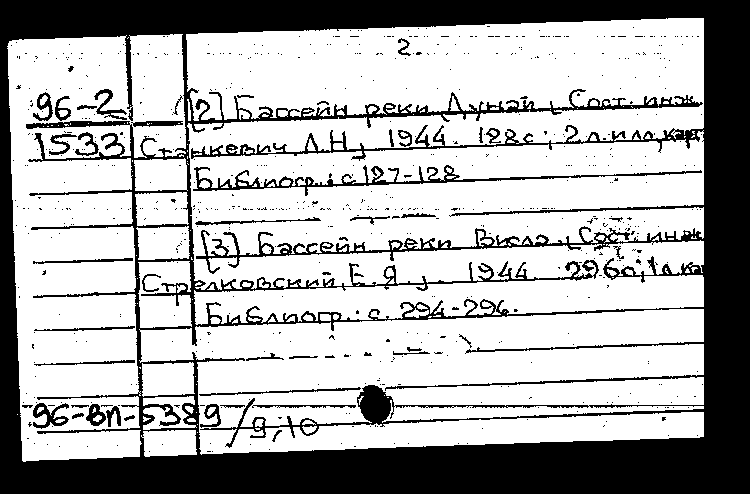 2.
96-2 [2] Бассейн реки Дунай, Сост. инж.
1533 Станкевич Л.Н., 1944. 128 с; 2 л. илл, карт
Библиогр.: с. 127-128
[3]. Бассейн реки Висла, Сост. инж
Стрелковский, Е. Я., 1944. 296 с; 1 л. кар
Библиогр.: с. 294-296.
96-вп-5389 /9,10